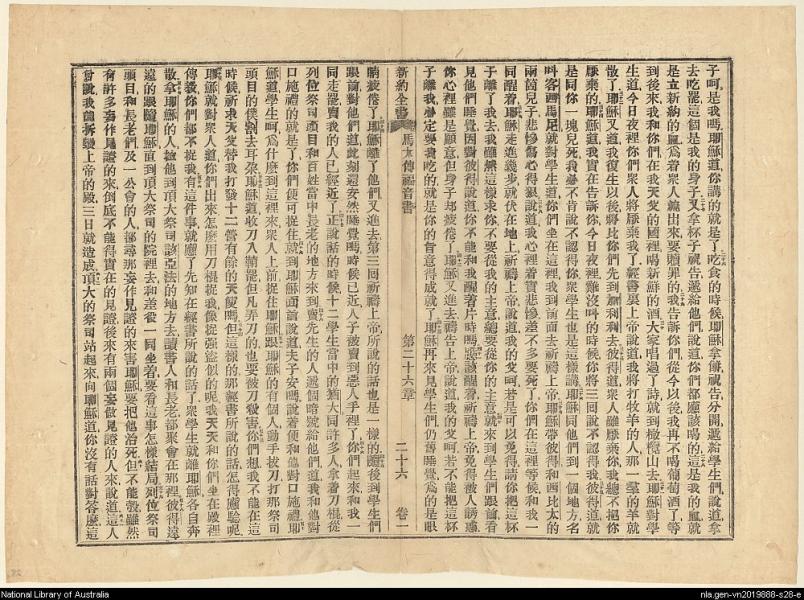 子呵是我嗎耶穌道你講的就是了吃食的時候耶穌拿餅祝告分開遞給學生們說道拿
去吃罷這個是我的身子又拿杯子祝告遞給他們說道你們都應該喝的這是我的血就
是立新約的血爲着衆人流出來要贖罪的我告訴你們從今以後我再不喝葡萄酒了等
到後來我和你們在我天父的國裡喝新鮮的酒大家唱過了詩就到橄欖山去耶穌對學
生道今日夜裡你們衆人將厭棄我了經書裏上帝說道我將打牧羊的人那一羣的羊就
散了耶穌又道我復生以後將比你們先到加利利去彼得道衆人雖厭棄你我總不把你
厭棄的耶穌道我實在告訴你今日夜裡雞沒叫的時候你將三回說不認得我彼得道就
是同你一塊兒死我必不肯說不認得你衆學生也是這樣講耶穌同他們到一個地方名
叫客西馬尼就對學生道你們坐在這裡我到前面去祈禱上帝耶穌帶彼得和西比太的
兩箇兒子悲慘驚心得狠說道我心裡着實悲慘差不多要死了你們在這裡等候和我一
同醒着耶穌走進幾步就伏在地上祈禱上帝說道我的父呵若是可以免得請你把這杯
子離了我去我雖然這樣求你不要從我的主意總要從你的主意就來到學生們跟前看
見他們睡覺因對彼得說道你不能和我醒着片時嗎該醒着祈禱上帝免得被人誘惑
你心裡雖是願意但身子却疲倦了耶穌又進去禱告上帝說道我的父呵若不能把這杯
子離我必定要我吃的就是你的旨意得成就了耶穌再來見學生們仍舊睡覺爲的是眼
新約全書 馬太傳福音書 第二十六章 二十六 卷一
睛疲倦了耶穌離了他們又進去第三回祈禱上帝所說的話也是一樣的隨後到學生們
跟前對他們道此刻還安然睡覺嗎時候已近人子被賣到惡人手裡了你們起來和我一
同走罷賣我的人已經近了正說話的時候十二學生當中的猶大同許多人拿着刀棍從
列位祭司頭目和百姓當中長老的地方來到賣先生的人遞個暗號給他們道我和他對
口施禮的就是了你們便可捉住就到耶穌面前說道夫子安嗎說着便和他對口施禮耶
穌道學生呵爲什麼到這裡來衆人上前捉住耶穌跟耶穌的有個人動手拔刀打那祭司
頭目的僕割去耳朵耶穌道收刀入鞘罷但凡弄刀的也要被刀殺害你們想我不能在這
時候祈求天父替我打發十二營有餘的天使嗎但這樣的那經書所說的話怎得應驗呢
耶穌就對衆人道你們出來怎麼用刀棍捉我像捉強盜似的呢我天天和你們坐在殿裡
傳教你們都不捉我有這件事就應了先知在經書所說的話了衆學生就離耶穌各自奔
散拿耶穌的人拉他到頂大祭司該亞法的地方去讀書人和長老都聚會在那裡彼得遠
遠的跟隨耶穌直到頂大祭司的院裡去和差役一同坐着要看這事怎樣結局列位祭司
頭目和長老們及一公會的人都尋那妄作見證的來害耶穌要把他治死但不能彀雖然
有許多妄作見證的來倒底不能得實在的見證後來有兩個妄做見證的人來說道這人
曾說我能拆毀上帝的殿三日就造成頂大的祭司站起來向耶穌道你沒有話對答麼這
National Library of Australia
nla.gen-vn2019888-s28-e